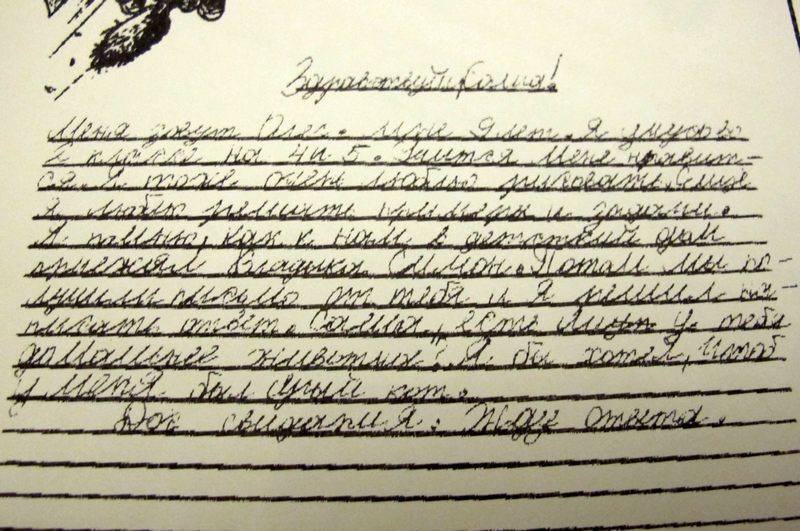 Здравствуй, Саша!
Меня зовут Олег. Мне 9 лет. Я учусь во
2 классе на 4 и 5. Учится мене нравит-
ся. Я тоже очень люблю рисовать. Еще
я люблю решать примеры и задачи.
Я помню, как к нам в детский дом
приежял Владыка Симон. Потом мы по-
лучили письмо от тебя и я решил на-
писать ответ. Саша, есть у тебя
домашнее животних? Я бы хотел, чтоб
у меня был кот.
До свидания. Жду ответа.